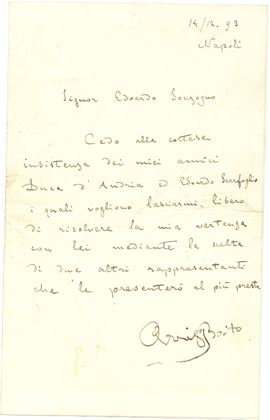 14/12. 93
Napoli
Signor Edoardo Sonzogno
Cedo alla cortese
insistenza dei miei amici
Duca d'Andria e Edoardo Scarfoglio
i quali vogliono lasciarmi libero
di risolvere la mia vertenza
con lei mediante la scelta
di due altri rappresentanti
che le presenterò al più presto
Arrigo Boito